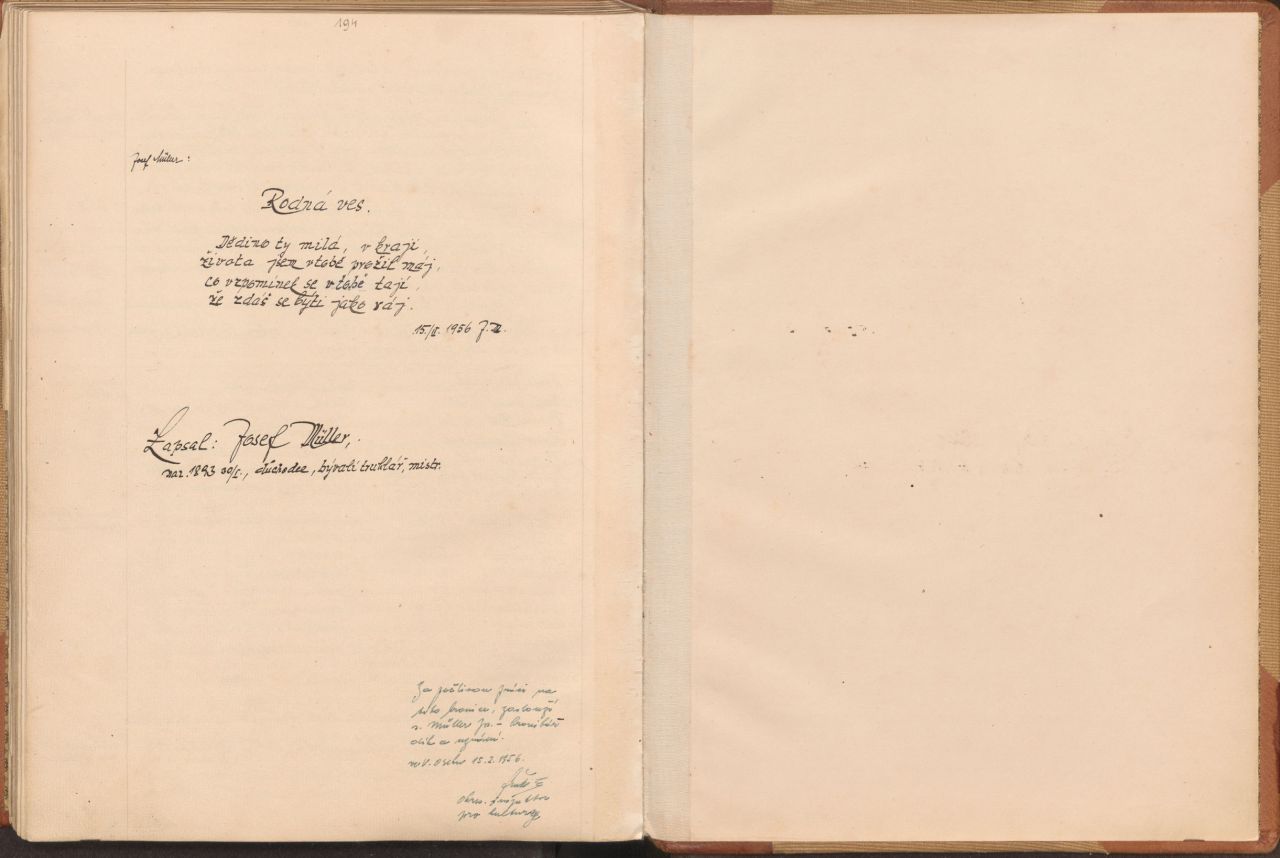 194
Josef Müller:
Rodná ves.
Dědino ty milá, v kraji,
života jsem v tobě prožil máj,
co vzpomínek se v tobě tají,
že zdáš se býti jako ráj.
15./II. 1956 J.M.
Zapsal: Josef Müller,
nar. 1893 , důchodce, bývalí truhlář, mistr.
Za poctivou práci na
této kronice, zaslouží
s. Müller Jo. - kronikář
dík a uznání.
15.2.1956.
Okres. inspektor
pro kulturu